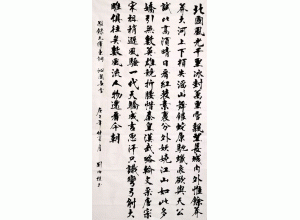 北國風光千里冰封萬里雪飄望長城內外惟餘莽
莽大河上下頓失滔滔山舞銀蛇原馳蠟象欲與天公
試比高須晴日看紅裝素裹分外妖嬈江山如此多
嬌引無數英雄競折腰惜秦皇漢武略輸文采唐宗
宋祖稍遜風騷一代天驕成吉思汗只識彎弓射大
雕俱往矣數風流人物還看今朝
錄毛澤東詞 沁園春雪
年 月 劉